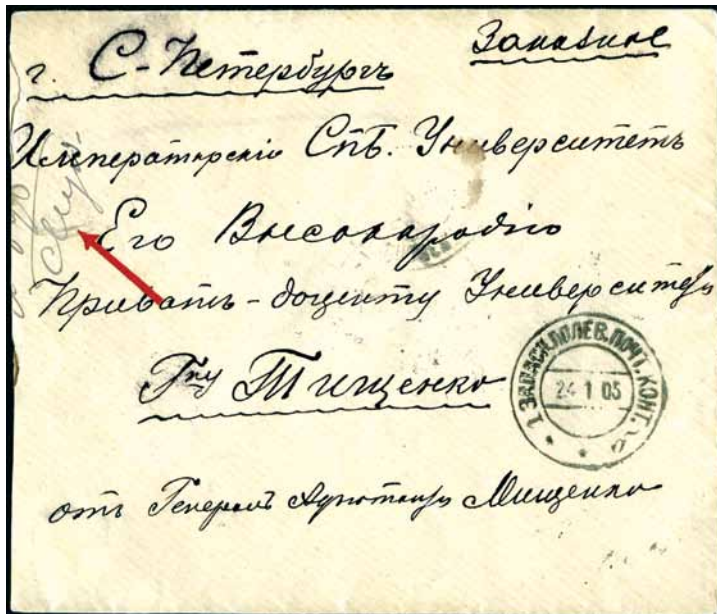 Заказное
г. С-Петербургъ
Императорскiй Спб. Университетъ
Его Высокородiю
Приватъ-доценту Университета
Гну Тищенко
1 ЗАПАСН. ПОЛЕВ. ПОЧТ. КОНТ.
24 1 05
отъ Генералъ Адъютанта Мищенко